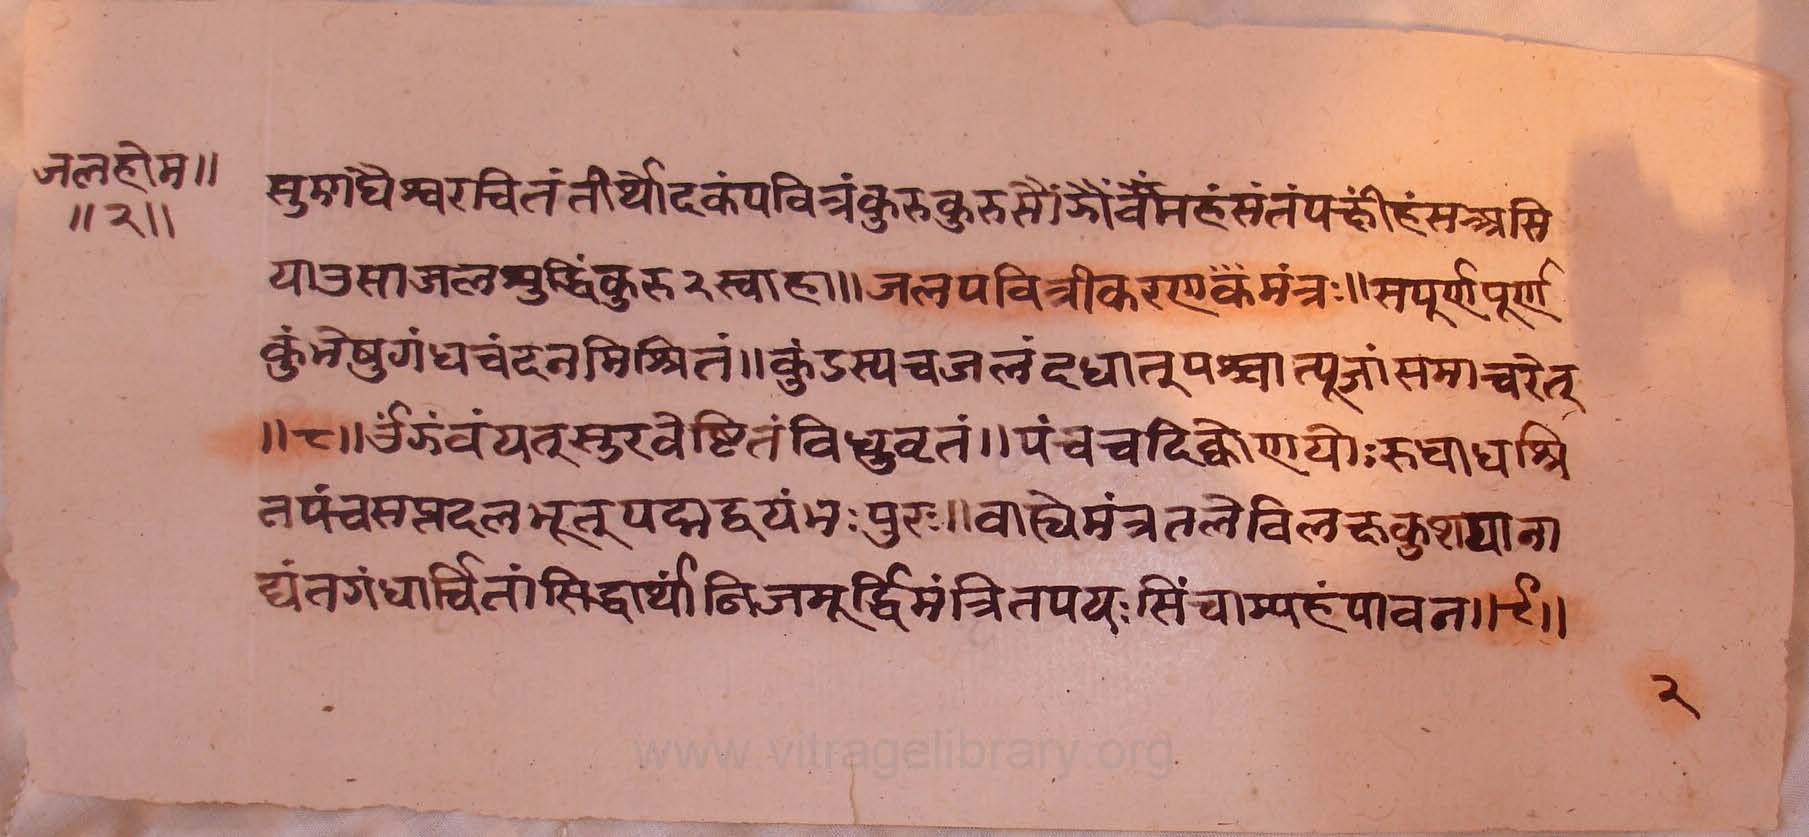 जलहोम॥
॥२॥
सुगांधैश्वरचितंतीर्थोदकंपवित्रंकुरुकुरु मंहंसंतंपं
याउसाजलशुद्धिंकुरु२स्वाहा॥जलपवित्रीकरण मंत्रः॥सपूर्णपूर्ण
कुंभेषुगंधचंदनमिश्रितं॥कुंडस्यचजलंदधात्पश्चात्पूजांसमाचरेत्
॥८॥ वंयत्सुरवेष्टितंविधुवृतं॥पंचचदिक्कोणयोः
तपंचसप्तदलभूत्पद्मद्वयंमःपुरः॥वाह्येमंत्रतले
द्यंतगंधार्चितांसिद्धार्थां मंत्रितपयःसिंचाम्यहंपावन॥९॥
२
www.vitragelibrary.org